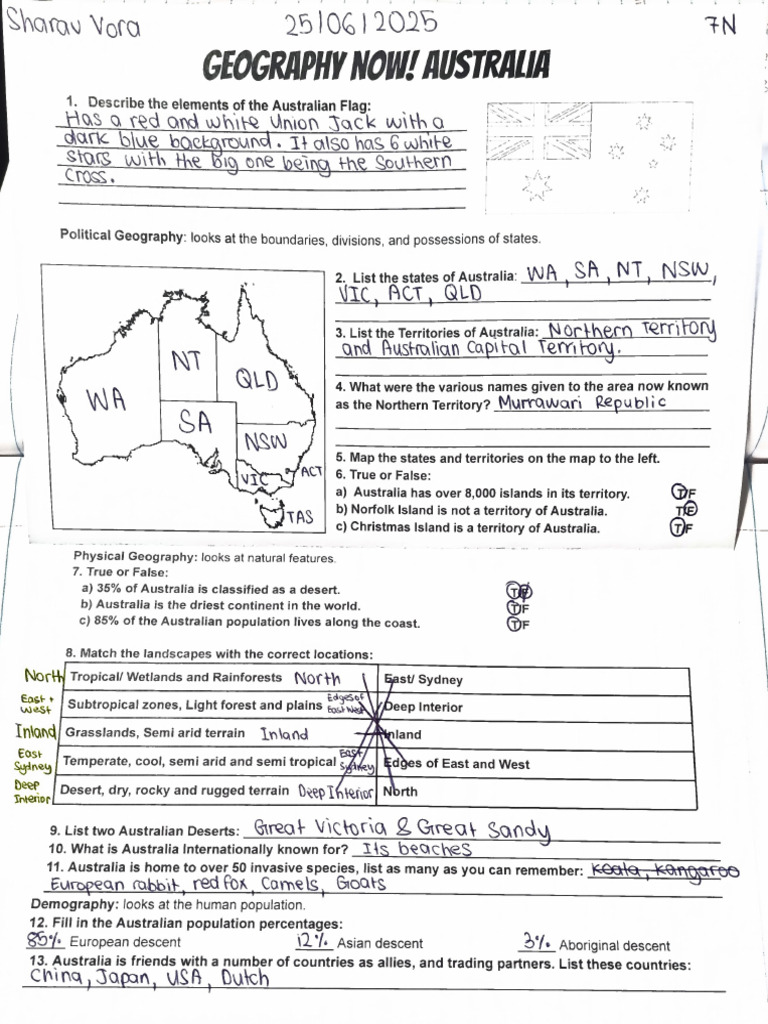 Sharav Vora 25/06/2025 7N
GEOGRAPHY NOW! AUSTRALIA
1. Describe the elements of the Australian Flag:
Has a red and white Union Jack with a
dark blue background. It also has 6 white
stars with the big one being the Southern
Cross.
Political Geography: looks at the boundaries, divisions, and possessions of states.
WA
NT
QLD
SA
NSW
VIC
ACT
TAS
2. List the states of Australia: WA, SA, NT, NSW,
VIC, ACT, QLD
3. List the Territories of Australia: Northern Territory
and Australian Capital Territory.
4. What were the various names given to the area now known
as the Northern Territory? Murrawari Republic
5. Map the states and territories on the map to the left.
6. True or False:
a) Australia has over 8,000 islands in its territory. T/F
b) Norfolk Island is not a territory of Australia. T/F
c) Christmas Island is a territory of Australia. T/F
Physical Geography: looks at natural features.
7. True or False:
a) 35% of Australia is classified as a desert. T/F
b) Australia is the driest continent in the world. T/F
c) 85% of the Australian population lives along the coast. T/F
8. Match the landscapes with the correct locations:
North Tropical/ Wetlands and Rainforests North East/ Sydney
East + West Subtropical zones, Light forest and plains Edges of East West Deep Interior
Inland Grasslands, Semi arid terrain Inland Inland
East Sydney Temperate, cool, semi arid and semi tropical East Sydney Edges of East and West
Deep Interior Desert, dry, rocky and rugged terrain Deep Interior North
9. List two Australian Deserts: Great Victoria & Great Sandy
10. What is Australia Internationally known for? Its beaches
11. Australia is home to over 50 invasive species, list as many as you can remember: koala, kangaroo
European rabbit, red fox, Camels, Goats
Demography: looks at the human population.
12. Fill in the Australian population percentages:
85% European descent 12% Asian descent 3% Aboriginal descent
13. Australia is friends with a number of countries as allies, and trading partners. List these countries:
China, Japan, USA, Dutch